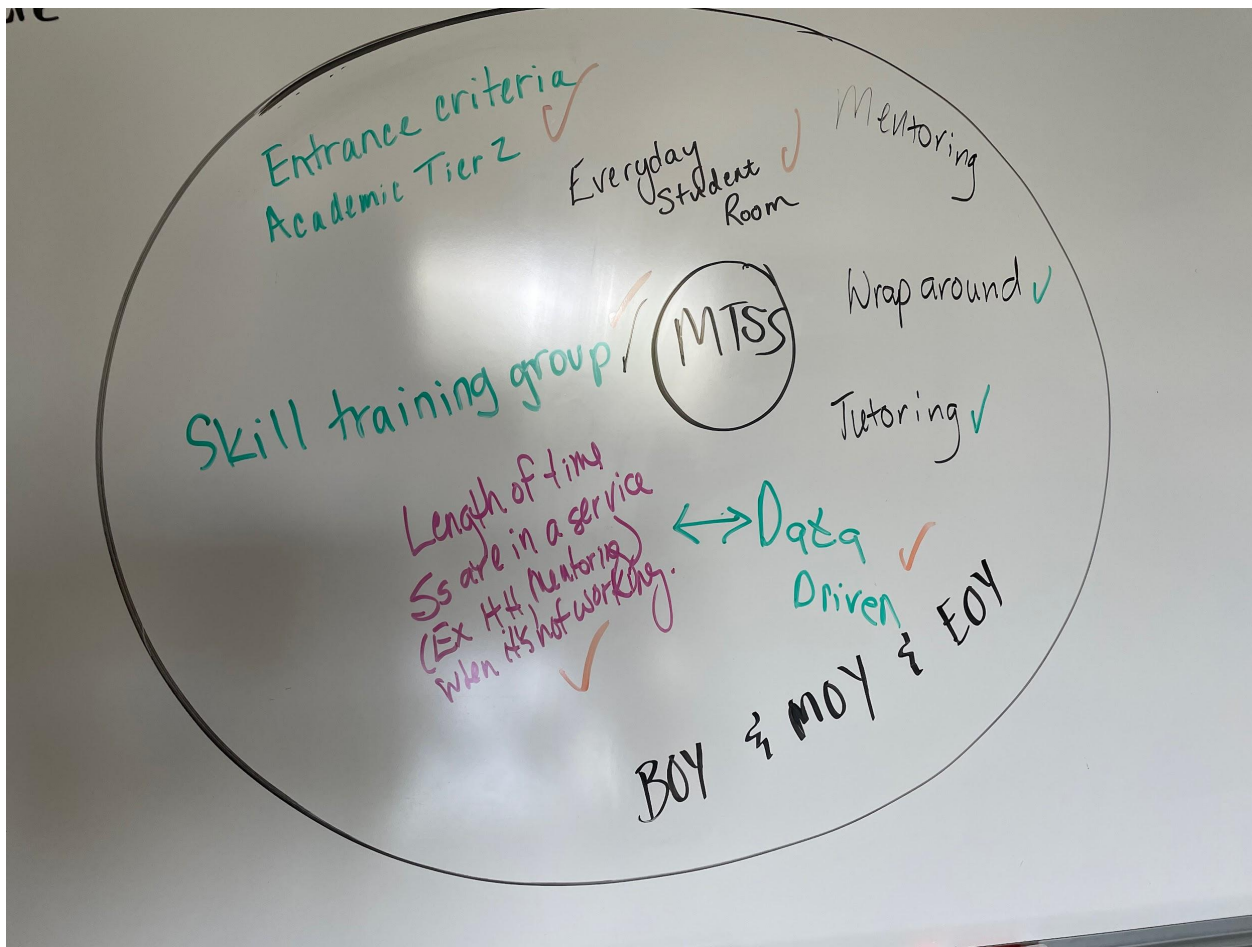 Entrance criteria
Academic Tier 2
Everyday
Student
Room
Mentoring
MTSS
Wrap around
Skill training group
Tutoring
Length of time
Ss are in a service
(Ex HH, Mentoring)
when it's not working.
Data
Driven
BOY & MOY & EOY